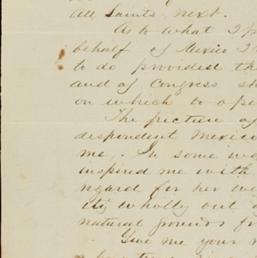 All Saints next.
As to what I p
behalf of Mexico I
to do provided th
and of Congress sh
on which to ope
The picture of
despondent Mexico
me. In some wa
inspired me with
regard for her we
wholly out o
natural grounds fr
Give me your